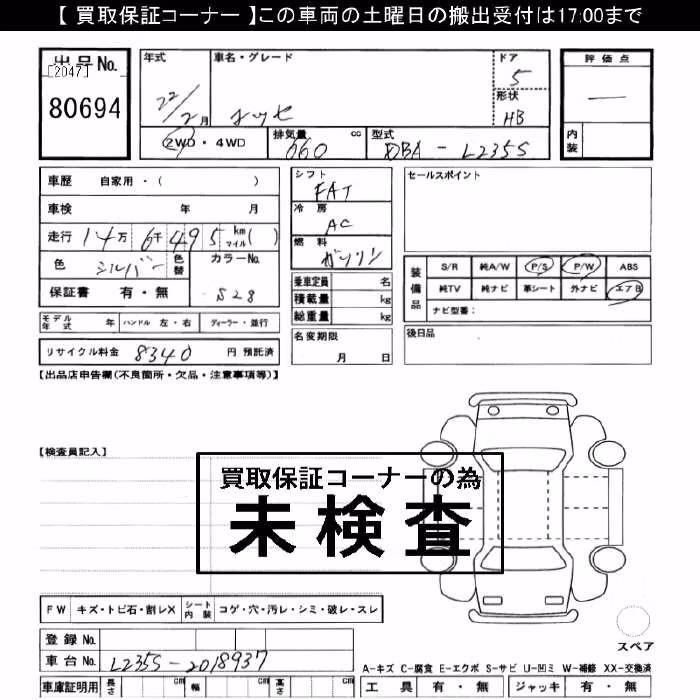 【 買取保証コーナー 】この車両の土曜日の搬出受付は17:00まで
出品No.
[2047]
80694
年式
22/2月
車名・グレード
エッセ
ドア
5
形状
HB
評価点
—
内装
2WD・4WD
排気量 cc
660
型式
DBA-L235S
車歴 自家用・( )
車検 年 月
走行 14万 6千 495 km マイル( )
色 シルバー 色替
カラーNo.
S28
保証書 有・無
シフト
FAT
冷房
AC
燃料
ガソリン
乗車定員 名
積載量 kg
総重量 kg
セールスポイント
装備品
S/R 純A/W P/S P/W ABS
純TV 純ナビ 革シート 外ナビ エアB
ナビ型番:
モデル年式 年 ハンドル 左・右 ディーラー・並行
名変期限
月 日
後日品
リサイクル料金 8340 円 預託済
【出品店申告欄(不良箇所・欠品・注意事項等)】
【検査員記入】
買取保証コーナーの為
未検査
FW キズ・トビ石・割レX シート内装 コゲ・穴・汚レ・シミ・破レ・スレ
登録No.
車台No. L235S-2018937
スペア
A-キズ C-腐食 E-エクボ S-サビ U-凹ミ W-補修 XX-交換済
車庫証明用 長さ cm 幅 cm 高さ cm
工具 有・無 ジャッキ 有・無